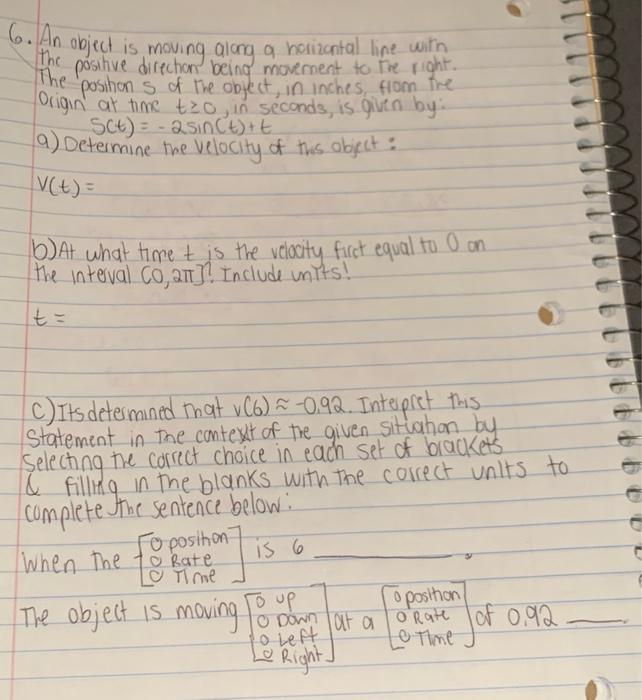 6. An object is moving along a horizontal line with
the positive direction being movement to the right.
The position s of the object, in inches, from the
Origin at time t≥0, in seconds, is given by:
S(t) = -2sin(t)+t
a) Determine the velocity of this object:
V(t) =
b) At what time t is the velocity first equal to 0 on
the interval [0, 2π]? Include units!
t =
c) Its determined that v(6) ≈ -0.92. Interpret this
Statement in the context of the given situation by
Selecting the correct choice in each set of brackets
& filling in the blanks with the correct units to
complete the sentence below:
When the [o position
o Rate
o Time] is 6 ________.
The object is moving [o up
o Down
o Left
o Right] at a [o position
o Rate
o Time] of 0.92 ____.